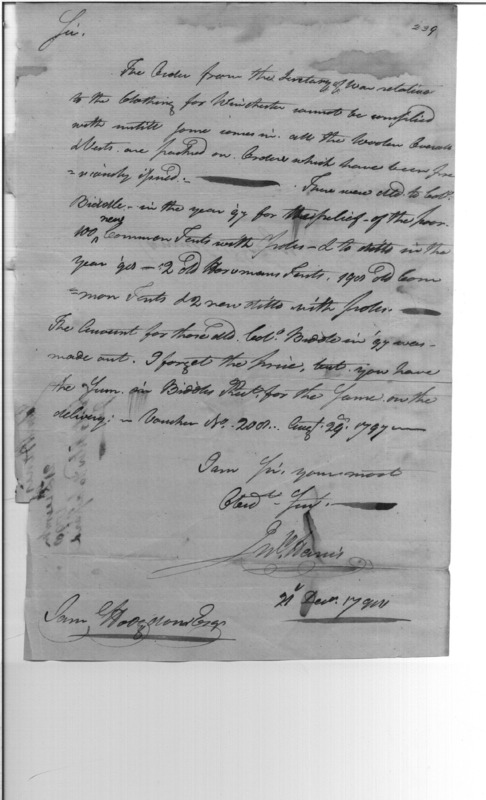 239
Sir.
The Order from the Secretary of War relative
to the Clothing for Winchester cannot be complied
with untill some comes in. all the Woolen Overalls
& Vests. are packed on Orders which have been pre
=viously issued.
There were sold to Colo.
Biddle - in the year 97 for the relief - of the poor
100 new Common Tents with Poles - & to ditto in the
year '98 - 2 old Horsemans Tents, 190 old Com
=mon Tents & 2 new ditto with Poles.
The Amount for those sold Colo. Biddle in '97 was
made out. I forget the price, but you have
the Sum in Biddles Rect. for the Same on the
delivery; - Voucher No. 208.. Augt. 29. 1797
I am Sir, your most
Obedt. Sert.
Jno. Harris
21t Decr. 179
Saml. Hodgdon Esqr.